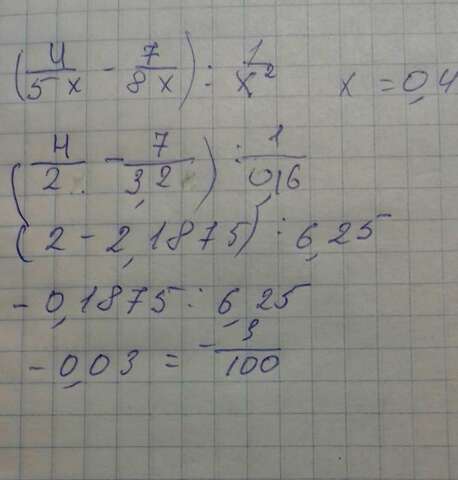 (4/5x - 7/8x) : 1/x² x = 0,4
(4/2 - 7/3,2) : 1/0,16
(2 - 2,1875) : 6,25
-0,1875 : 6,25
-0,03 = -3/100